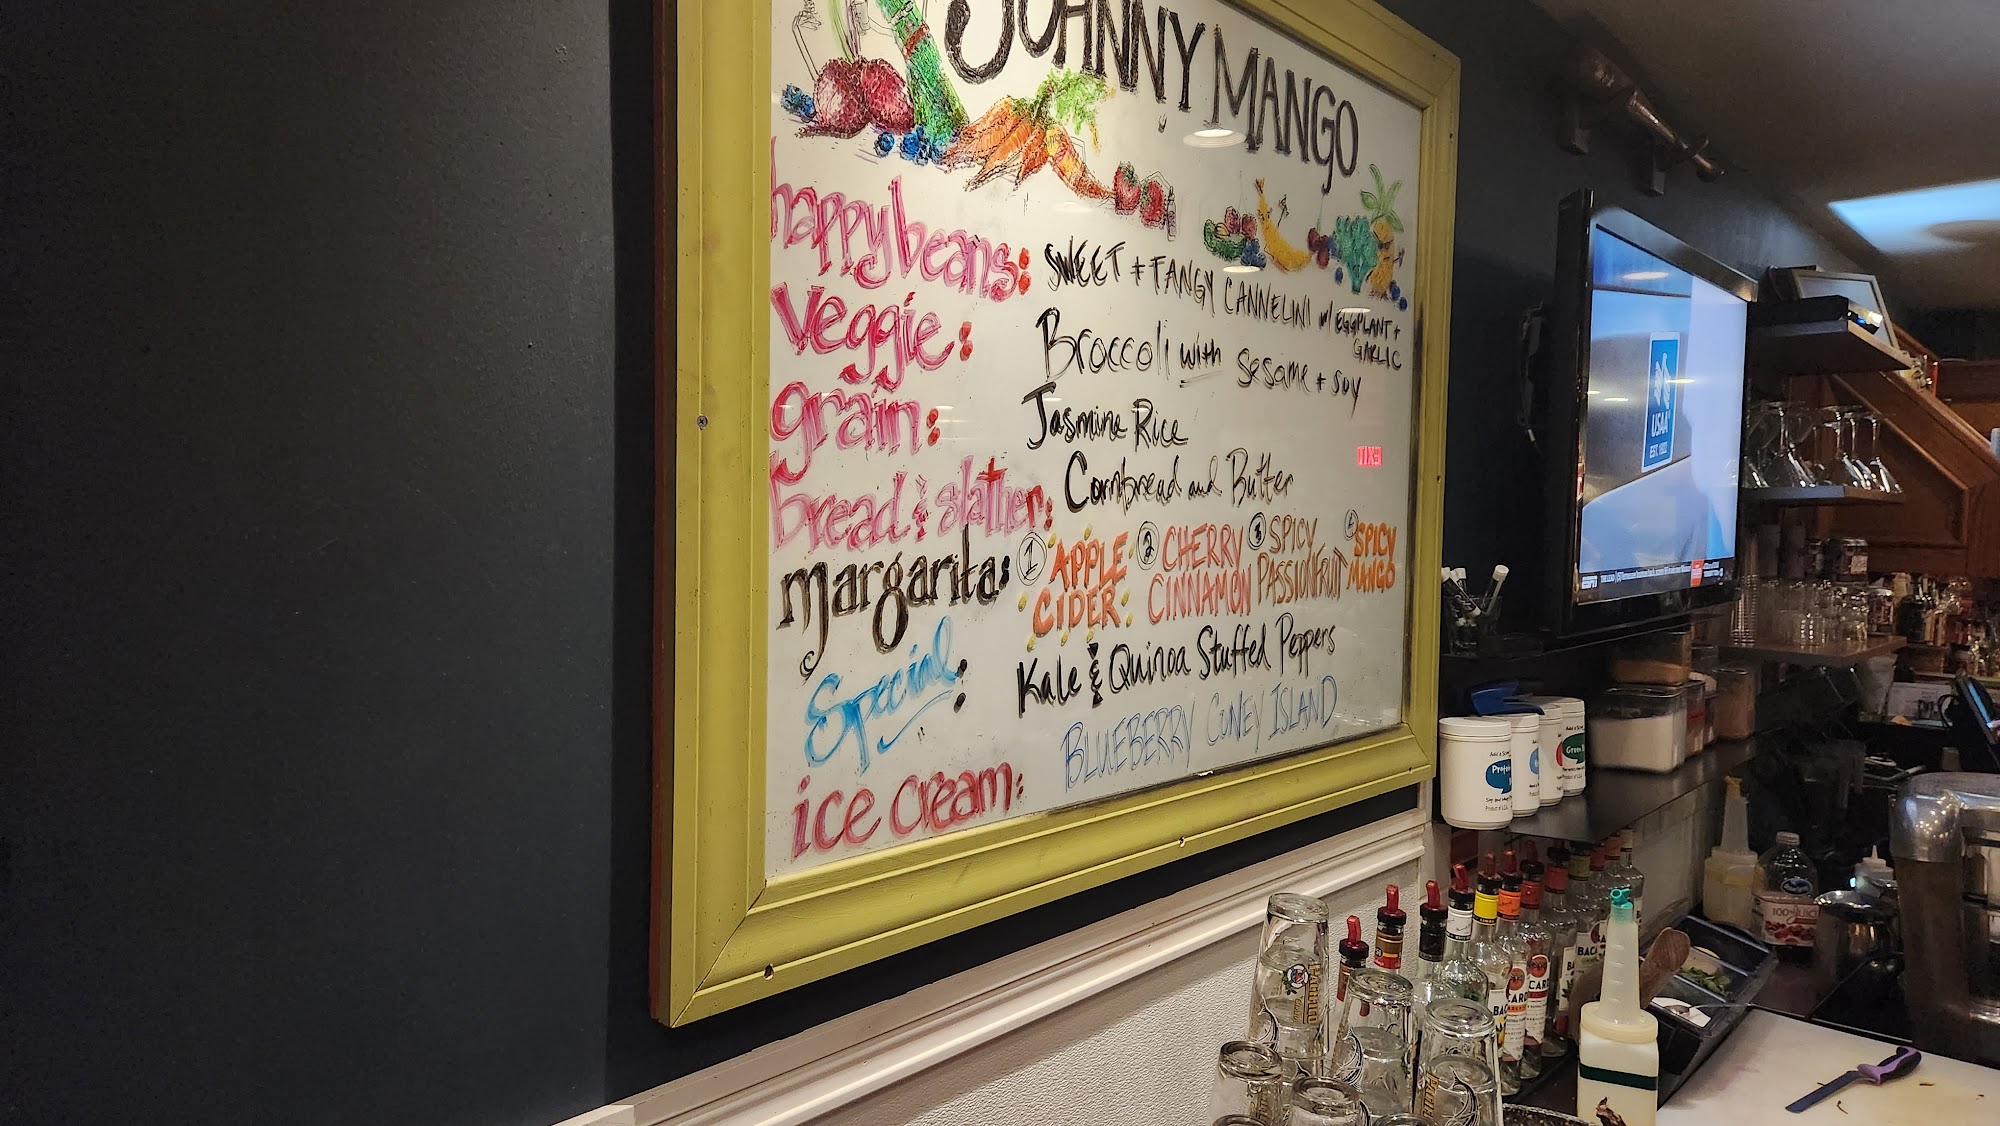 JOHNNY MANGO
happy beans: SWEET + TANGY CANNELINI w/ EGGPLANT +
GARLIC
Veggie: Broccoli with sesame + soy
grain: Jasmine Rice
bread & slather: Cornbread and Butter
margarita: 1 APPLE CIDER 2 CHERRY CINNAMON 3 SPICY PASSIONFRUIT 4 SPICY MANGO
Special: Kale & Quinoa Stuffed Peppers
ice cream: BLUEBERRY CONEY ISLAND
USAA
EST. 1922
ESPN
100% JUICE